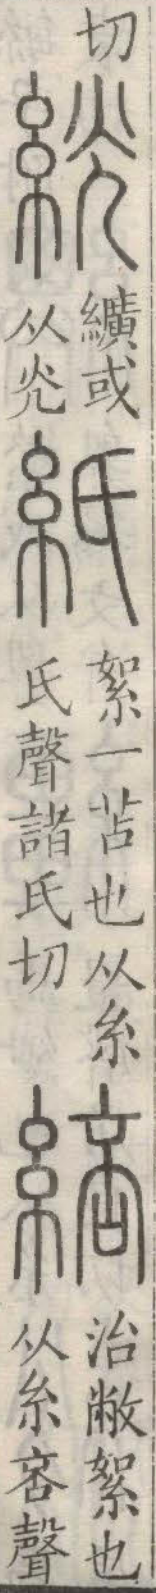 切
絖
纊或
从灮
紙
絮一苫也从糸
氏聲諸氏切
䋨
治敝絮也
从糸咅聲